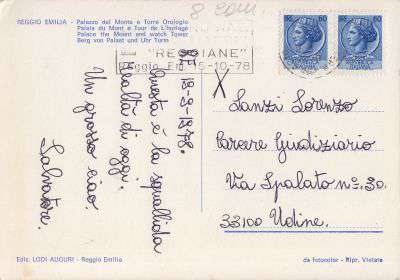 REGGIO EMILIA - Palazzo del Monte e Torre Orologio
Palais du Mont e Tour de l'horloge
Palace the Mount and watch Tower
Berg von Palast und Uhr Turm
"REGGIANE"
Reggio Em. 15-10-78
RE 18-9-1978.
Questa è la squallida
realtà di oggi.
Un grosso ciao.
Salvatore.
X
Lanzi Lorenzo
Carcere Giudiziario
Via Spalato n=. 30.
33100 Udine.
Ediz. LODI AUGURI - Reggio Emilia
da fotocolor - Ripr. Vietata